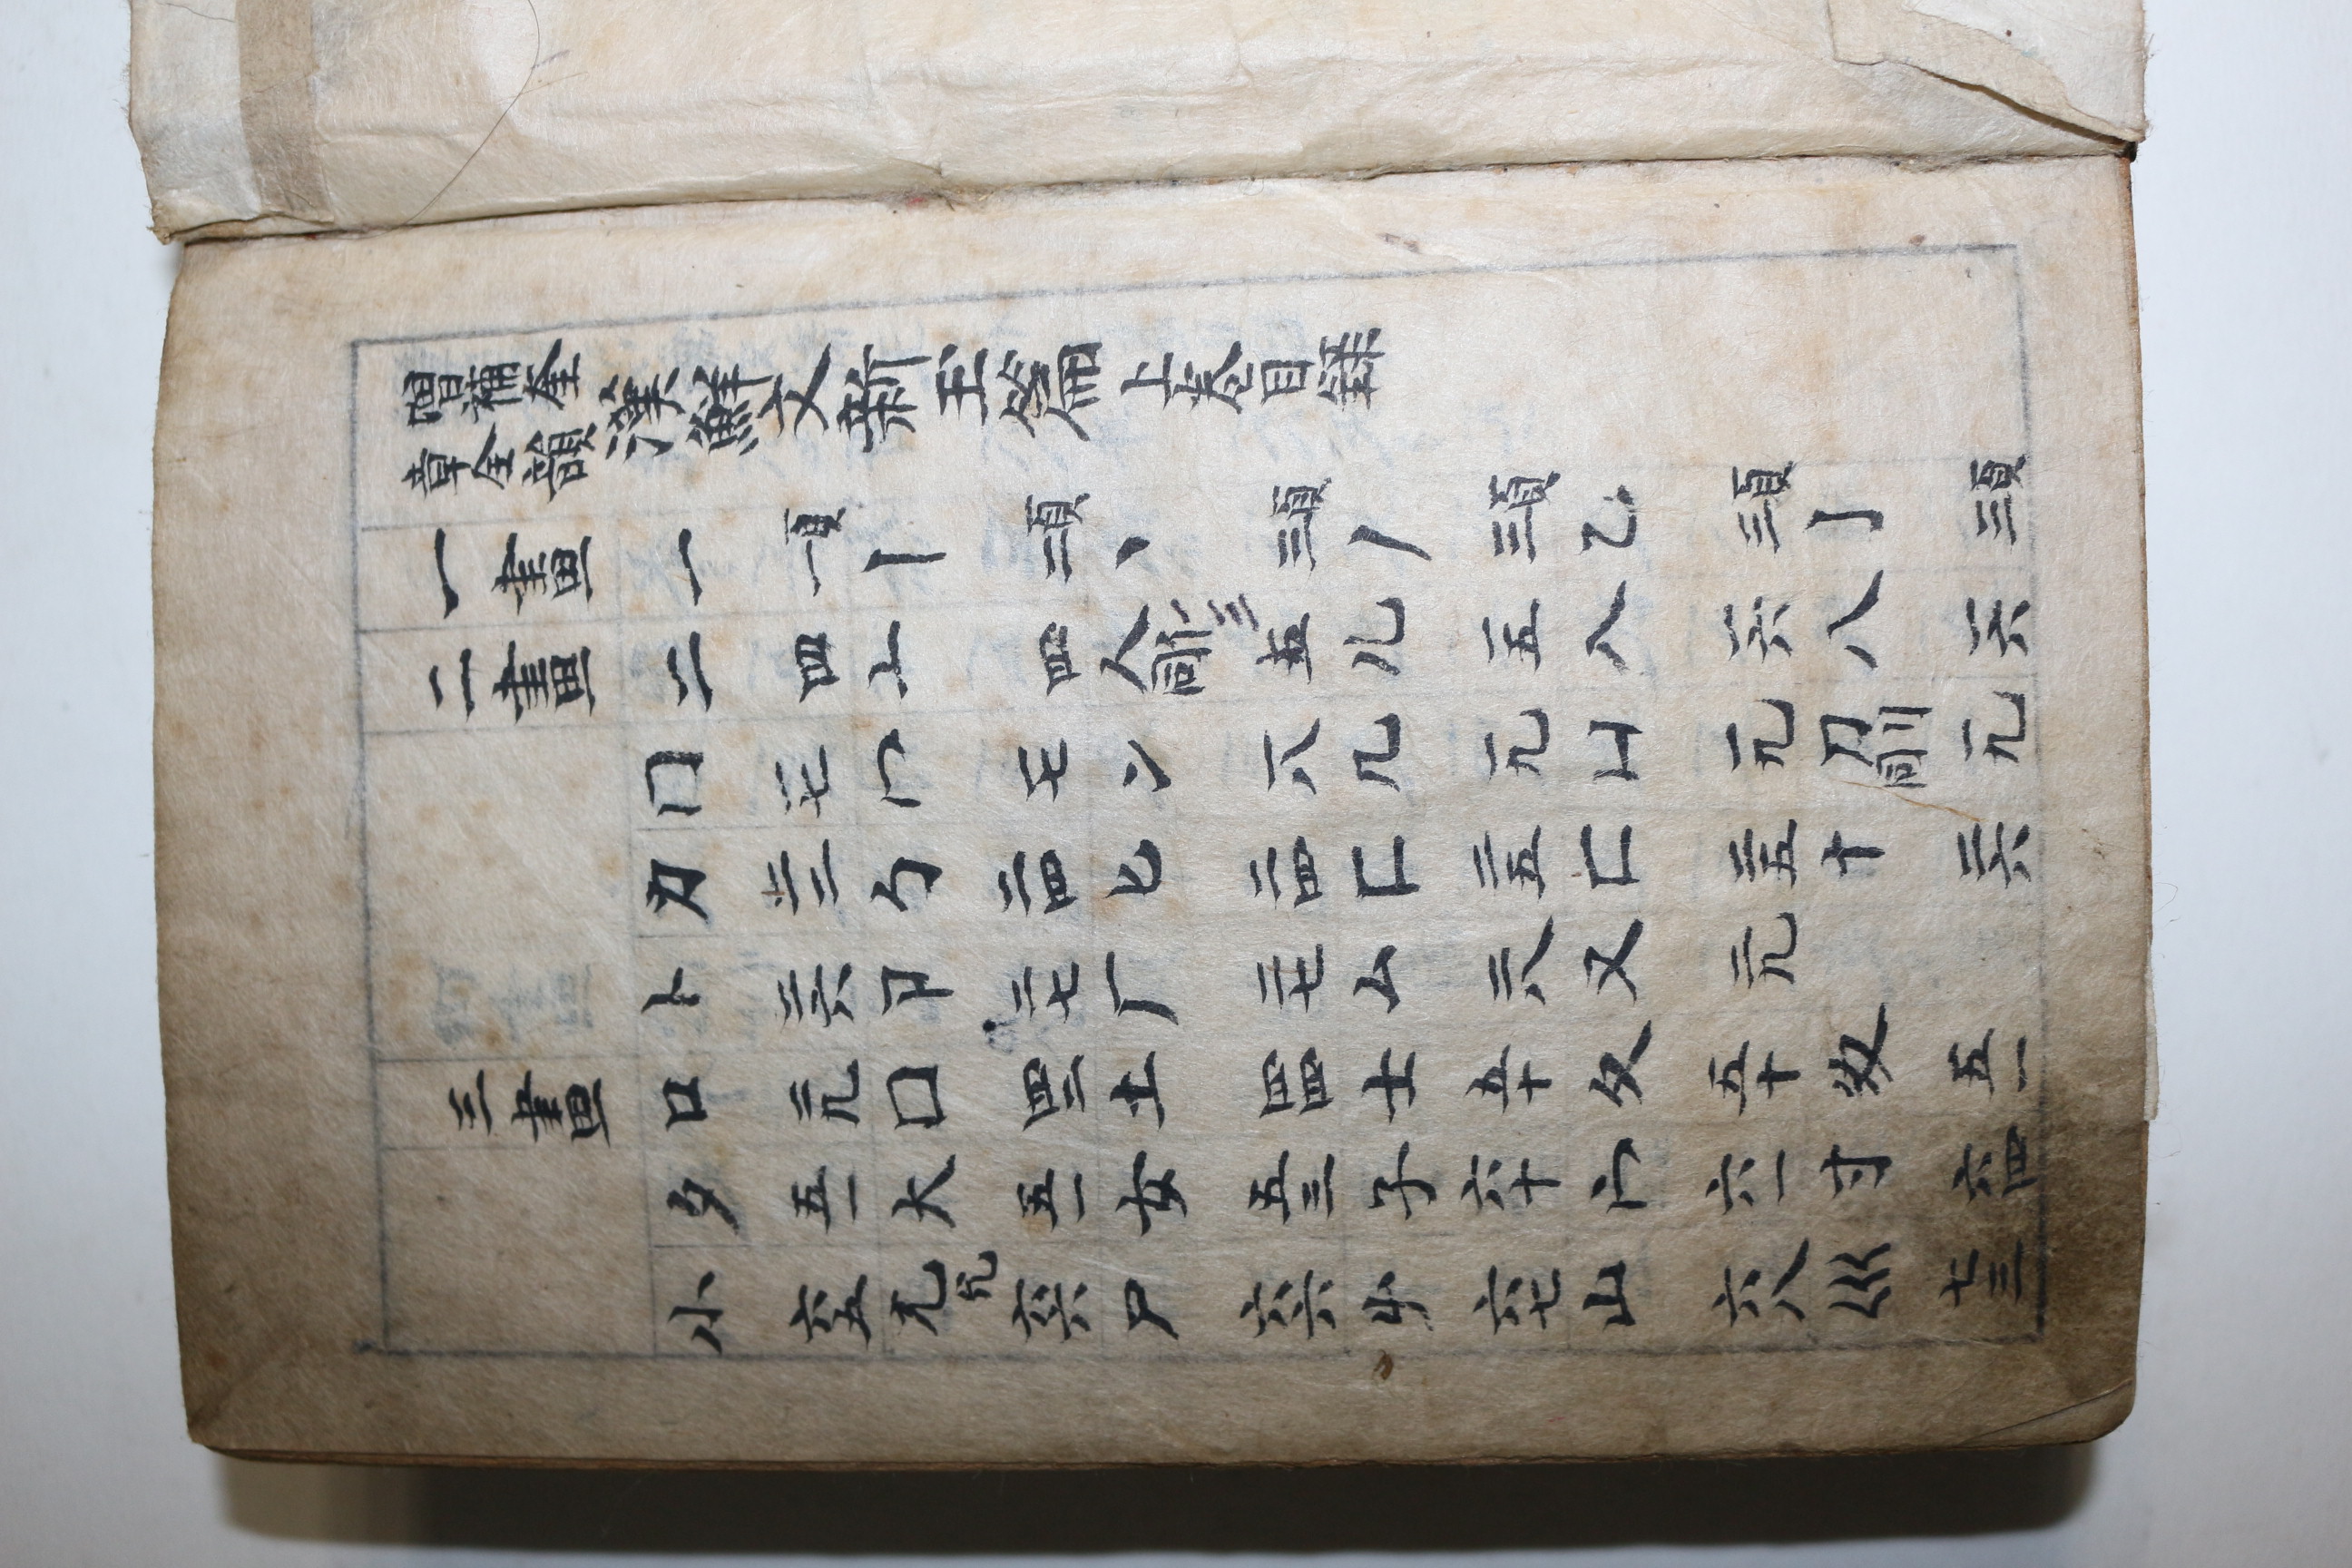 增補奎
章全韻
漢鮮文新玉篇 上卷目録
一畫 一 一頁 丨 二頁 丶 三頁 丿 三頁 乙 三頁 亅 三頁
二畫 二 四 亠 四 人 亻同 五 儿 一五 入 一六 八 一六
冂 一七 冖 一七 冫 一八 几 一九 凵 一九 刀 刂同 一九
力 勹 二四 匕 二四 匚 二五 匸 二五 十 二六
卜 二六 卩 二七 厂 二七 厶 二八 又 二九
三畫 口 二九 囗 四二 土 四四 士 五十 夂 五十 夊 五一
夕 五一 大 五一 女 五三 子 六十 宀 六一 寸 六四
小 六五 尢 允 六六 尸 六六 屮 六七 山 六八 巛 七三